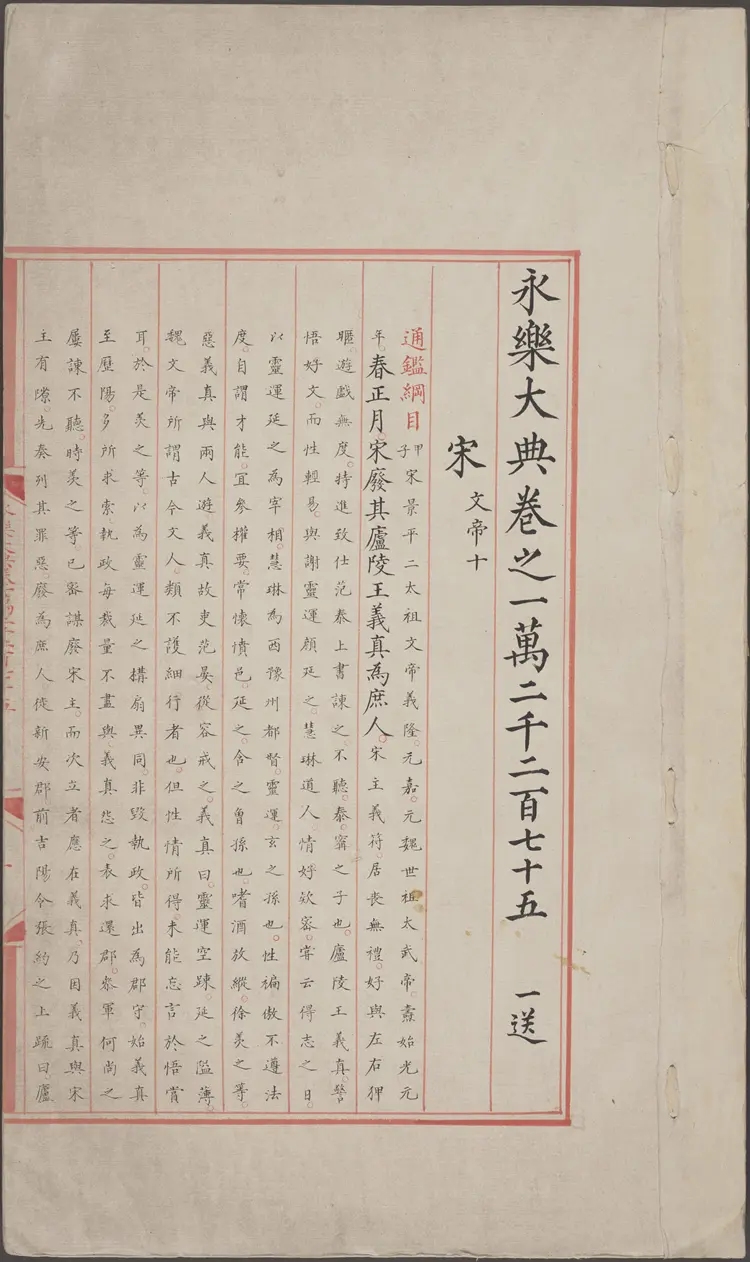 永樂大典卷之一萬二千二百七十五 一送
宋 文帝十
通鑑綱目 甲子 宋景平二太祖文帝義隆。元嘉。元魏世祖太武帝。燾始光元
年。春正月。宋廢其廬陵王義真為庶人。宋主義符。居喪無禮。好與左右狎
暱。遊戲無度。特進致仕范泰上書諫之。不聽。泰。甯之子也。廬陵王義真。警
悟好文。而性輕易。與謝靈運顏延之。慧琳道人情好欵密。甞云得志之日。
以靈運延之為宰相。慧琳為西豫州都督。靈運。玄之孫也。性褊傲不遵法
度。自謂才能。宜參權要。常懷憤邑。延之。含之曾孫也。嗜酒放縱。徐羨之等。
惡義真與兩人遊。義真故吏范晏。從容戒之。義真曰。靈運空踈。延之隘薄。
魏文帝所謂古今文人。類不護細行者也。但性情所得。未能忘言於悟賞
耳。於是羨之等。以為靈運延之構扇異同。非毀執政。皆出為郡守。始義真
至歷陽。多所求索。執政每裁量不盡與。義真怨之。表求還郡。參軍何尚之
屢諫不聽。時羨之等。已密謀廢宋主。而次立者應在義真。乃因義真與宋
主有隙。先奏列其罪惡。廢為庶人。徙新安郡。前吉陽令張約之上疏曰。廬